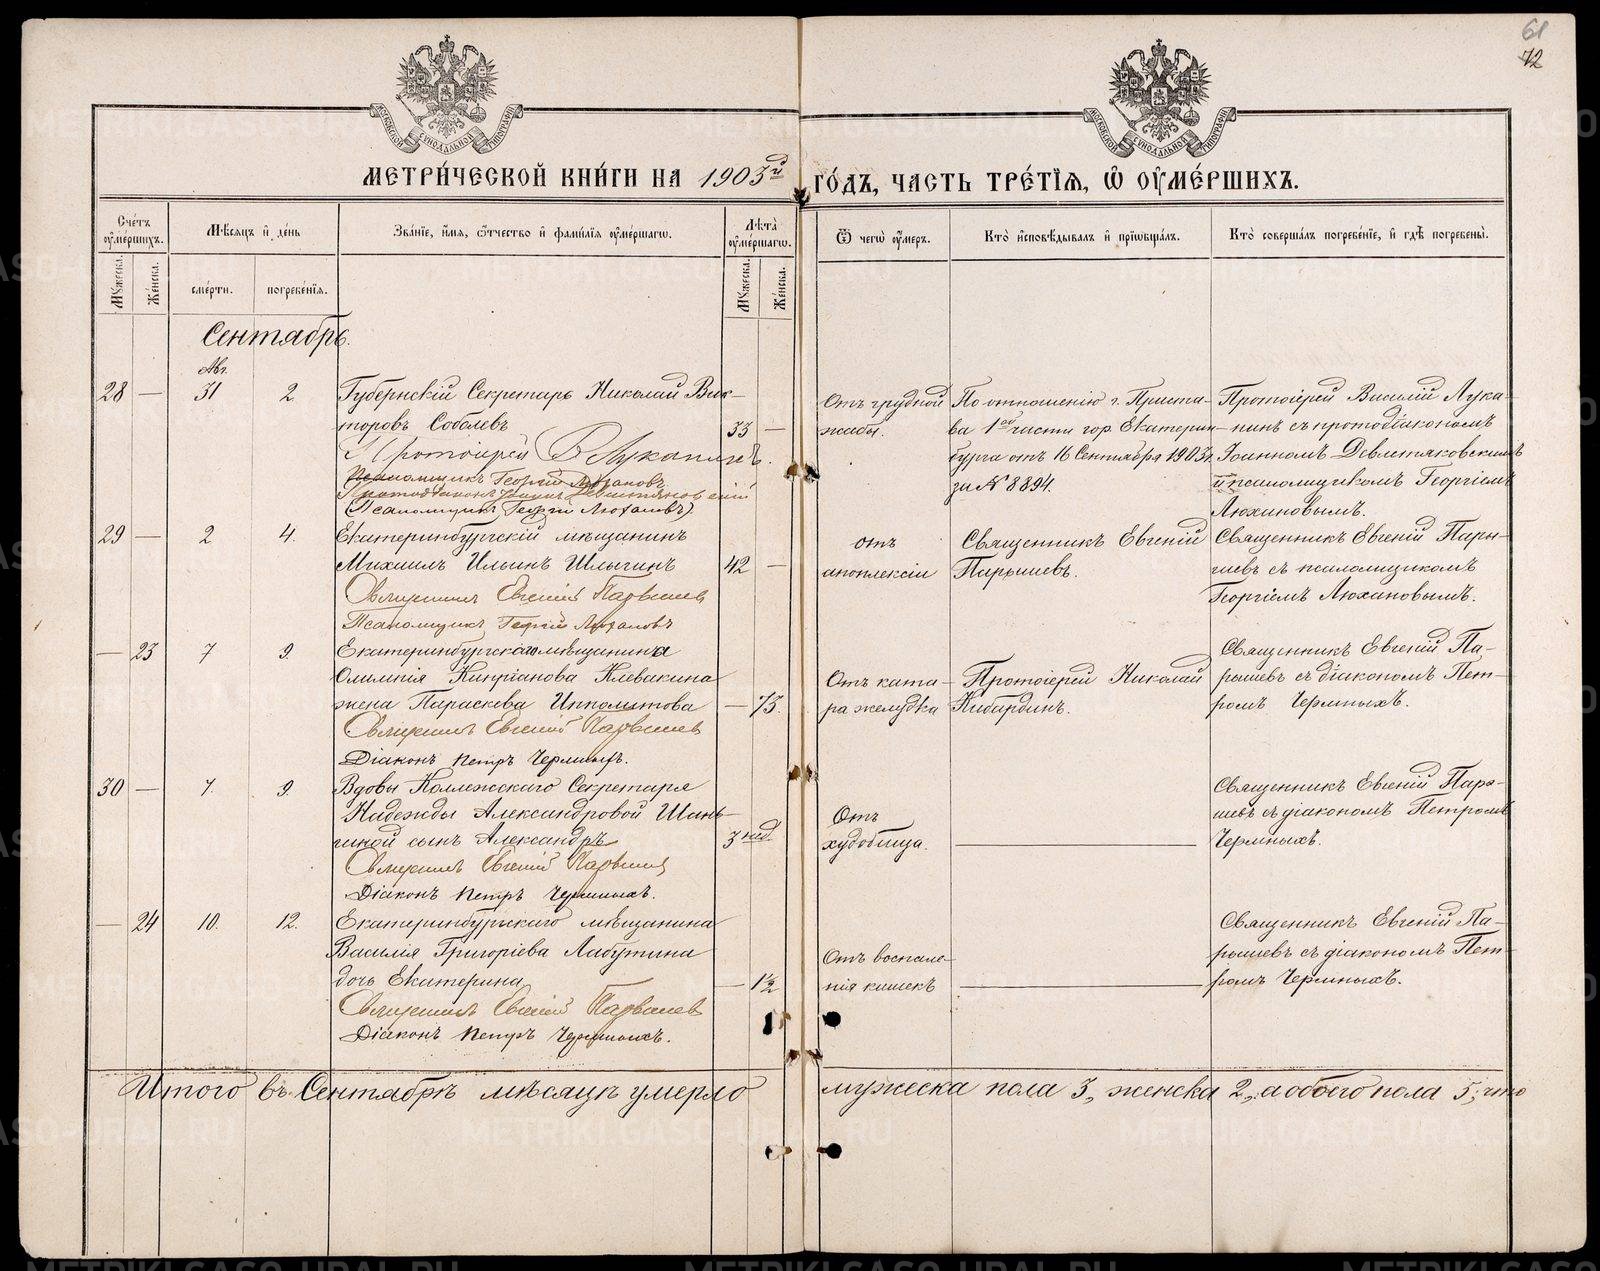 61
72
МОСКОВСКОЙ СѴНОДАЛЬНОЙ ТИПОГРАФІИ
МОСКОВСКОЙ СѴНОДАЛЬНОЙ ТИПОГРАФІИ
МЕТРИ́ЧЕСКОЙ КНИ́ГИ НА 1903й ГО́ДЪ, ЧАСТЬ ТРЕ́ТІѦ, Ѡ҆ ОУ҆МЕ́РШИХЪ.
Счетъ оумершихъ.
Мѣсяцъ и день
Званїе, имя, ѿчество и фамилїя оумершагѡ.
Лѣта оумершагѡ.
Ѿ чегѡ оумеръ.
Кто исповѣдывалъ и прїобщалъ.
Кто совершалъ погребенїе, и гдѣ погребены.
Мужеска.
Женска.
смерти.
погребенїя.
Мужеска.
Женска.
Сентябрь.
Авг.
28 — 31 2 Губернскій Секретарь Николай Вик-
торовъ Соболевъ 33 —
Протоіерей В Луканинъ.
Псаломщикъ Георгій Люхановъ
(Псаломщикъ Георгій Люхановъ)
Отъ грудной
жабы.
По отношенію г. Приста-
ва 1ой части гор. Екатерин-
бурга отъ 16 Сентября 1903 г.
за № 8894.
Протоіерей Василій Лука-
нинъ съ протодіакономъ
Іоанномъ Девлетьяковскимъ
и псаломщикомъ Георгіемъ
Люхановымъ.
29 — 2 4. Екатеринбургскій мѣщанинъ
Михаилъ Ильинъ Шлыгинъ 42 —
Священникъ Евгеній Парышев
Псаломщикъ Георгій Люхановъ
отъ
апоплексіи
Священникъ Евгеній
Парышевъ.
Священникъ Евгеній Пары-
шевъ съ псаломщикомъ
Георгіемъ Люхановымъ.
— 23 7 9. Екатеринбургскаго мѣщанина
Олимпія Кипріанова Клевакина
жена Параскева Ипполитова — 73.
Священникъ Евгеній Парышев
Діаконъ Петръ Чермныхъ.
Отъ ката-
ра желудка
Протоіерей Николай
Кибардинъ.
Священникъ Евгеній Па-
рышевъ съ діакономъ Пет-
ромъ Чермныхъ.
30 — 7. 9. Вдовы Коллежскаго Секретаря
Надежды Александровой Шань-
гиной сынъ Александръ 3 нед.
Священникъ Евгеній Парышев
Діаконъ Петръ Чермныхъ.
Отъ
худобища.
Священникъ Евгеній Пары-
шевъ съ діакономъ Петромъ
Чермныхъ.
— 24 10. 12. Екатеринбургскаго мѣщанина
Василія Григоріева Лабутина
дочь Екатерина — 1½
Священникъ Евгеній Парышев
Діаконъ Петръ Чермныхъ.
Отъ воспале-
нія кишекъ
Священникъ Евгеній Па-
рышевъ съ діакономъ Пет-
ромъ Чермныхъ.
Итого въ Сентябрѣ мѣсяцѣ умерло мужеска пола 3, женска 2, а обоего пола 5; что
METRIKI.GASO-URAL.RU